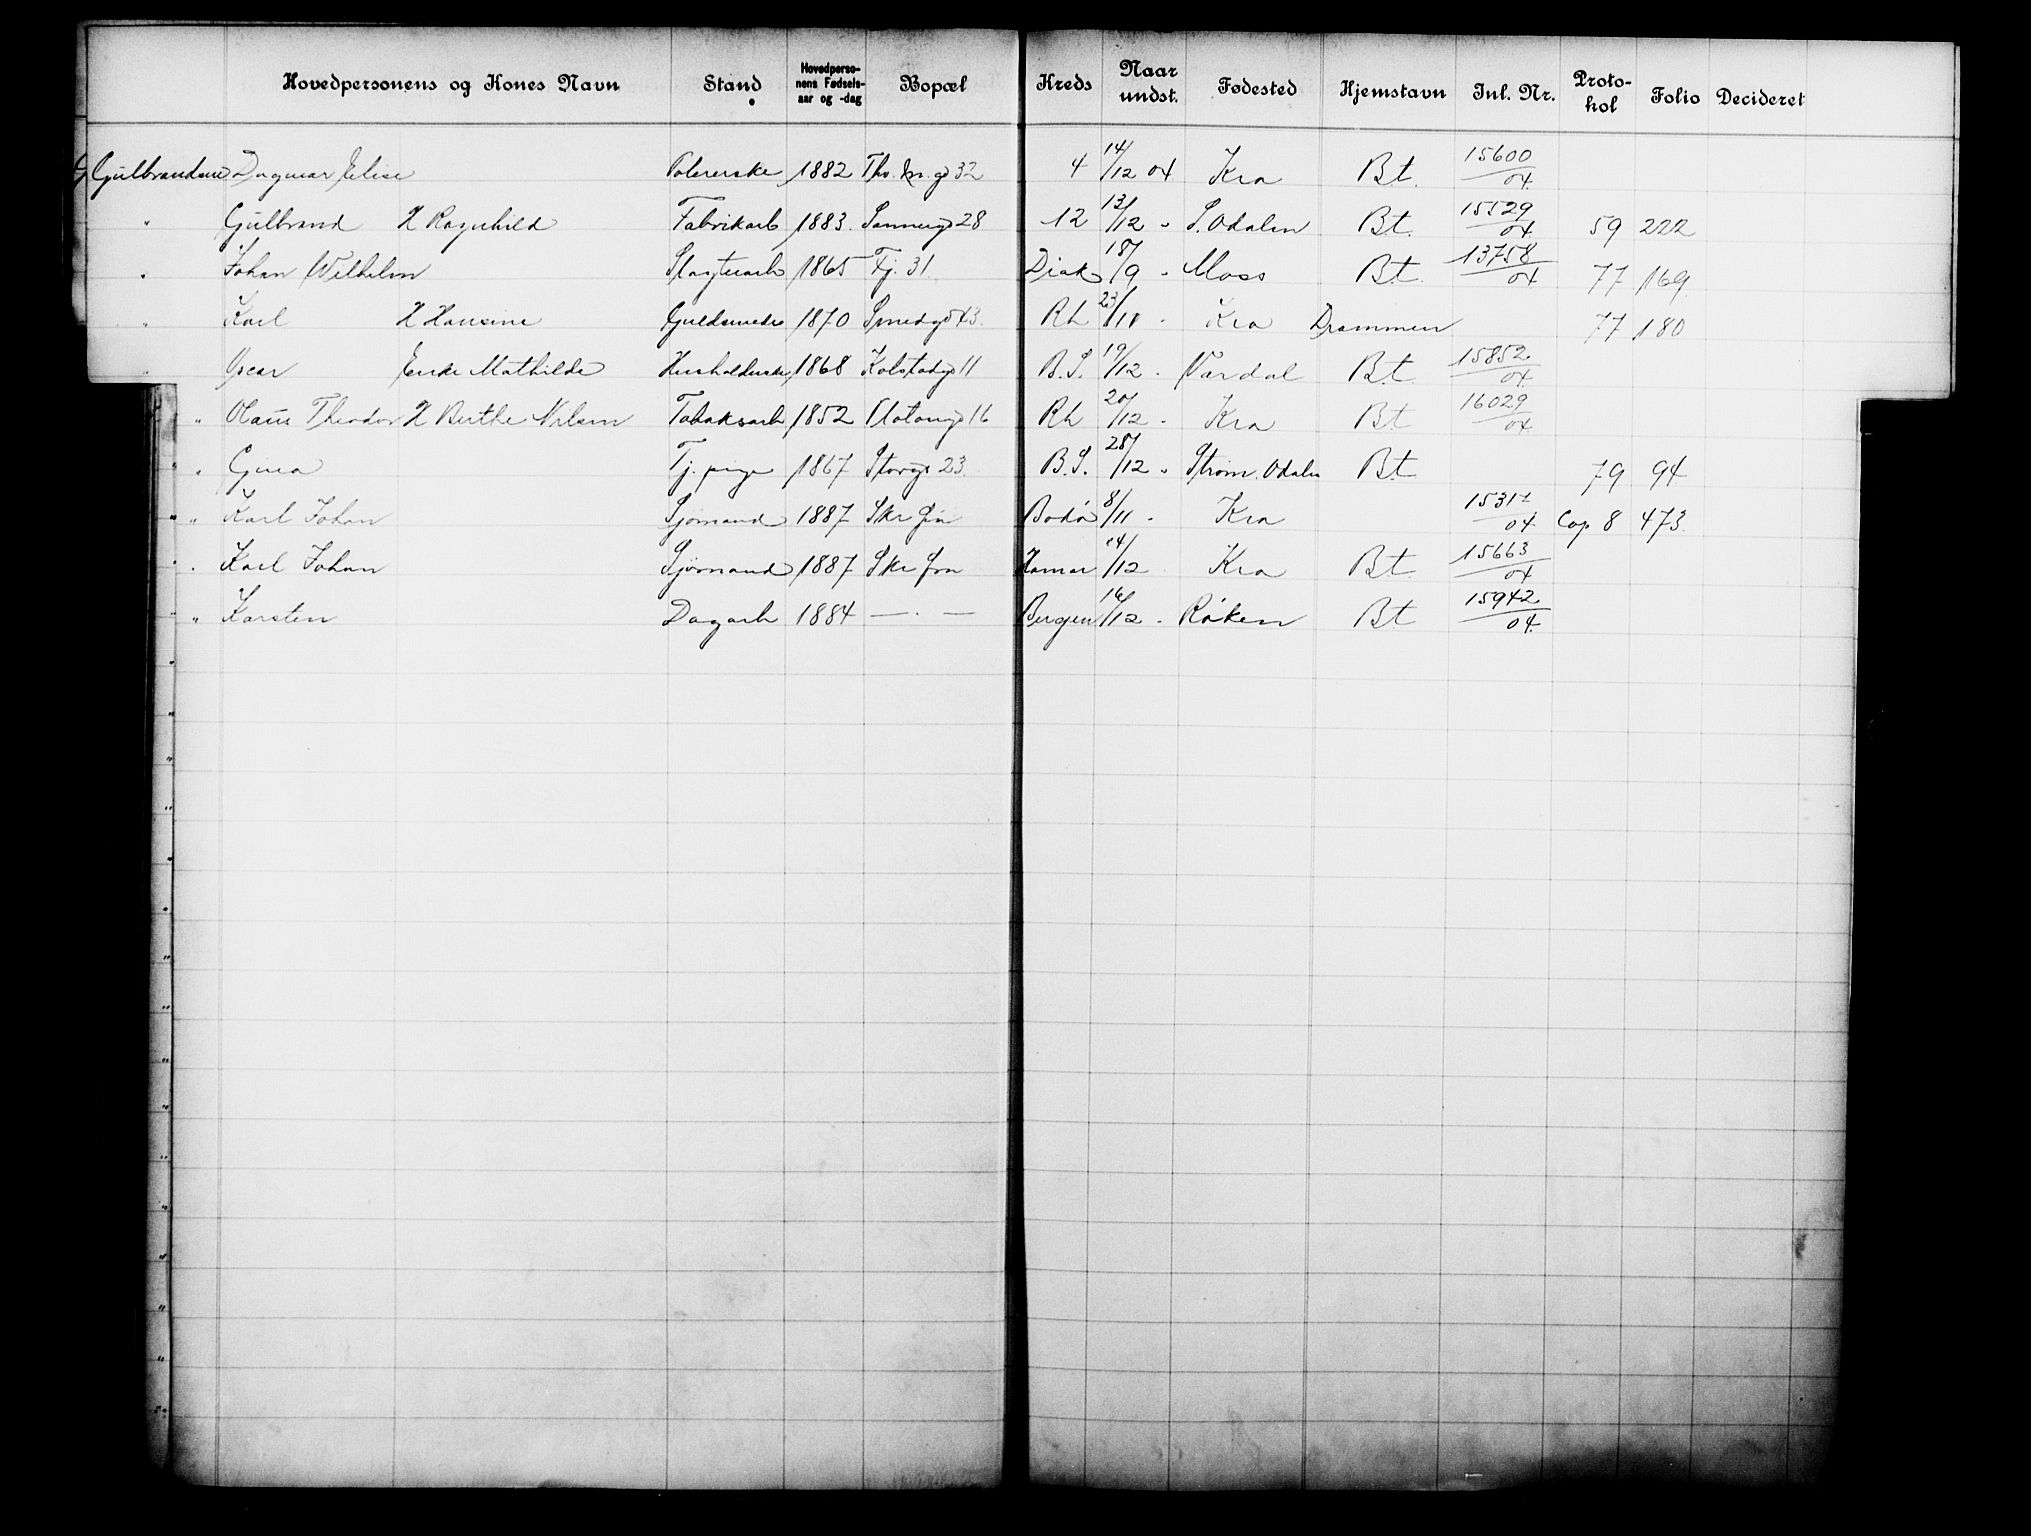 Hovedpersonens og Kones Navn Stand Hovedpersonens Fødselsaar og -dag Bopæl Kreds Naar undst. Fødested Hjemstavn Inl. Nr. Protokol Folio Decideret
Gulbrandsen Dagmar Elise Polererske 1882 32 4 14/12 04 Kra Bt. 15600/04
" Gulbrand H Ragnhild Fabrikarb 1883 Sannergd 28 12 13/12 " S. Odalen Bt. 15529/04 59 222
" Johan Wilhelm Slagteriarb 1865 Fj. 31 Diak 18/9 " Moss Bt. 13758/04 77 169
" Karl H Hansine Guldsmeds 1870 Smedgd 43 Rh 23/11 " Kra Drammen 77 180
" Oscar Enke Mathilde Husholderske 1868 Kolstadgd 11 B.S. 19/12 " Vardal Bt. 15852/04
" Olaus Theodor H Berthe Nilsen Tobaksarb 1852 16 Rh 20/12 " Kra Bt 16029/04
" Gina Tj. pige 1867 Storgd 23 B.S. 28/12 " Strøm. Odalen Bt 79 94
" Karl Johan Sjømand 1887 Bodø 8/11 " Kra 15317/04 Cop 8 473
" Karl Johan Sjømand 1887 Hamar 14/12 Kra Bt. 15663/04
" Karsten Dagarb 1884 — " — Bergen 16/12 " Røken Bt 15942/04